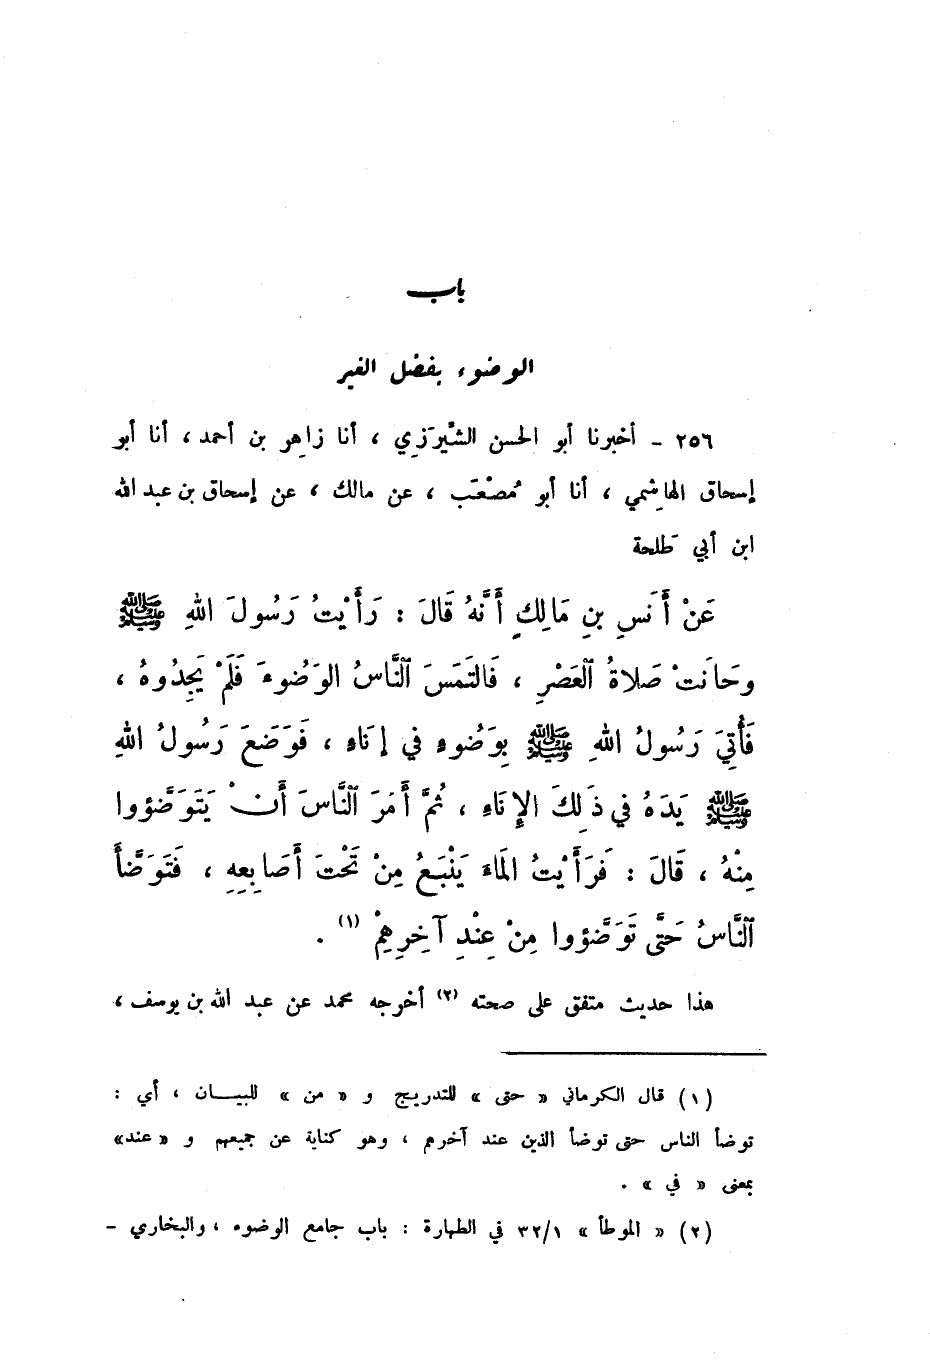 باب
الوضوء بفضل الغير
٢٥٦ ـ أخبرنا أبو الحسن الشِّيرَزِي ، أنا زاهِر بن أحمد ، أنا أبو
إسحاق الهاشِمي ، أنا أبو مُصْعَب ، عن مالك ، عن إسحاق بن عبد الله
ابن أبي طَلحة
عَنْ أَنَسِ بنِ مَالِكٍ أَنَّهُ قَالَ : رَأَيْتُ رَسُولَ اللهِ ﷺ
وحَانَتْ صَلاةُ العَصْرِ ، فَالتَمَسَ النَّاسُ الوَضُوءَ فَلَمْ يَجِدُوهُ ،
فَأُتِيَ رَسُولُ اللهِ ﷺ بِوَضُوءٍ في إنَاءٍ ، فَوَضَعَ رَسُولُ اللهِ
ﷺ يَدَهُ في ذَلِكَ الإنَاءِ ، ثُمَّ أَمَرَ النَّاسَ أَنْ يَتَوَضَّؤوا
مِنْهُ ، قَالَ : فَرَأَيْتُ المَاءَ يَنْبَعُ مِنْ تَحْتَ أَصَابِعِهِ ، فَتَوَضَّأَ
النَّاسُ حَتَّى تَوَضَّؤوا مِنْ عِنْدِ آخِرِهِمْ (١) .
هذا حديث متفق على صحته (٢) أخرجه محمد عن عبد الله بن يوسف ،
(١) قال الكرماني « حتى » للتدريج و « من » للبيــان ، أي :
توضأ الناس حتى توضأ الذين عند آخرهم ، وهو كناية عن جميعهم و « عند »
بمعنى « في » .
(٢) « الموطأ » ٣٢/١ في الطهارة : باب جامع الوضوء ، والبخاري -